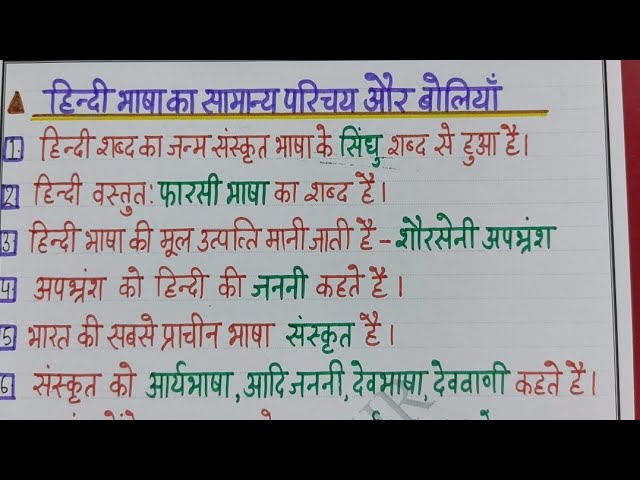 हिन्दी भाषा का सामान्य परिचय और बोलियाँ
1. हिन्दी शब्द का जन्म संस्कृत भाषा के सिंधु शब्द से हुआ है।
2 हिन्दी वस्तुत: फारसी भाषा का शब्द है।
3 हिन्दी भाषा की मूल उत्पत्ति मानी जाती है - शौरसेनी अपभ्रंश
4 अपभ्रंश को हिन्दी की जननी कहते है।
5 भारत की सबसे प्राचीन भाषा संस्कृत है।
6 संस्कृत को आर्यभाषा, आदि जननी, देवभाषा, देववाणी कहते है।